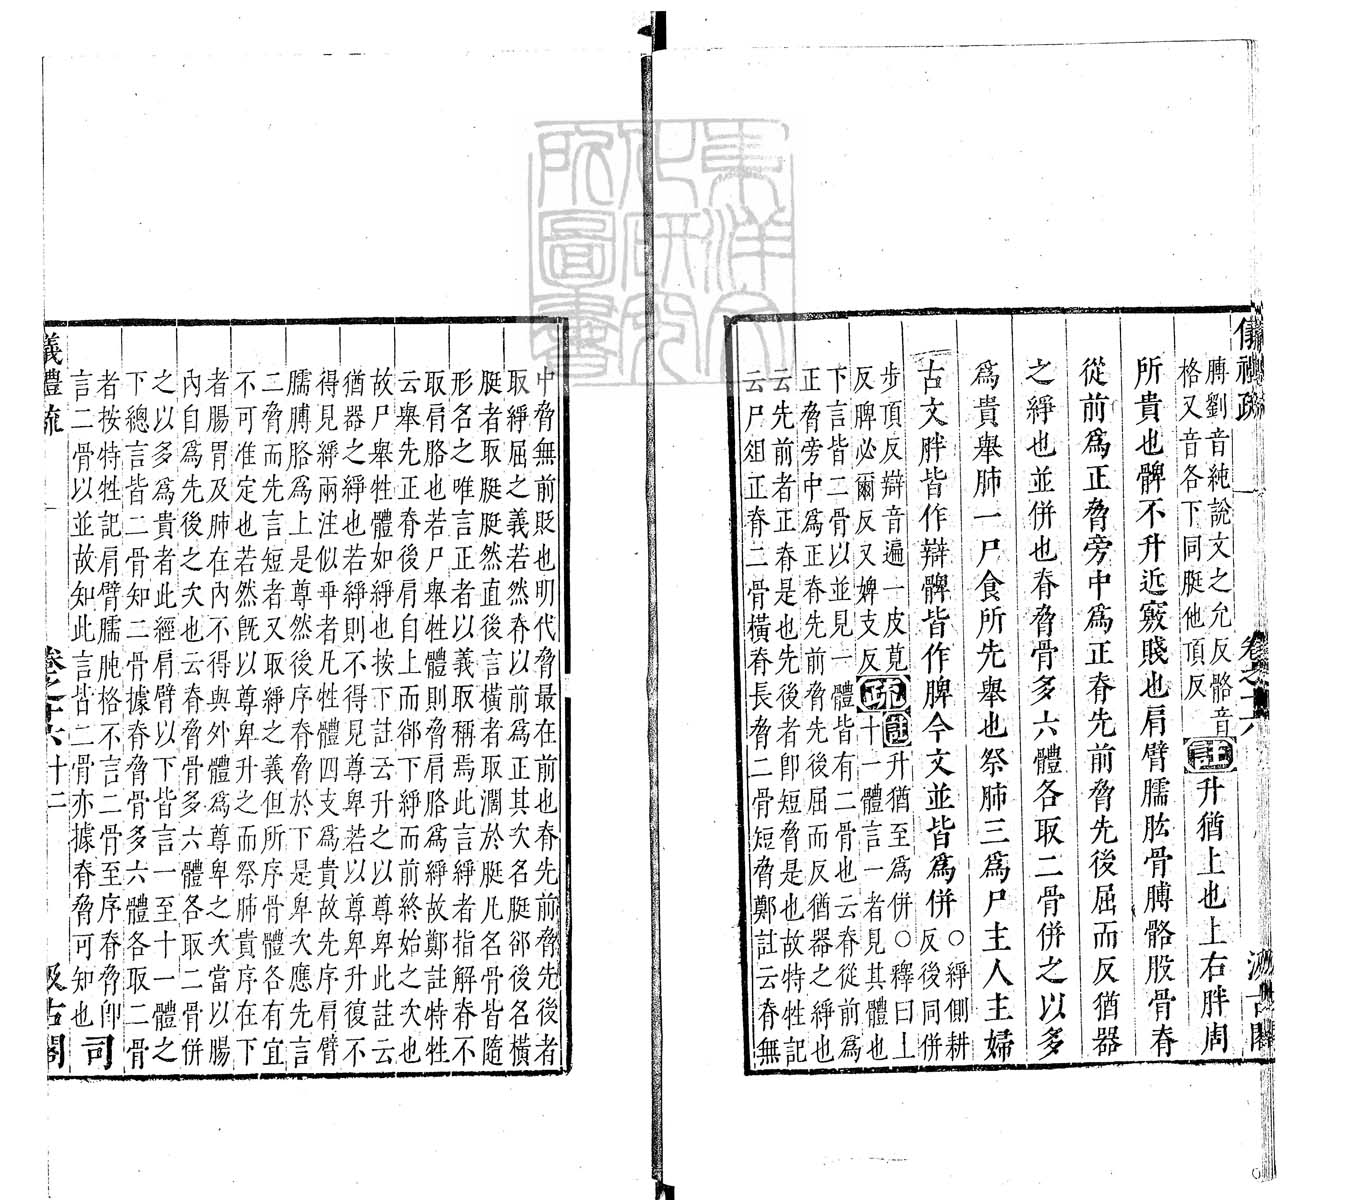 儀禮疏 卷之十六 汲古閣
膊劉音純說文之允反骼音
格又音各下同脡他頂反
註升猶上也上右胖周
所貴也髀不升近竅賤也肩臂臑肱骨膊骼股骨脊
從前爲正脅旁中爲正脊先前脅先後屈而反猶器
之綪也並併也脊脅骨多六體各取二骨併之以多
爲貴舉肺一尸食所先舉也祭肺三爲尸主人主婦
古文胖皆作辯髀皆作脾今文並皆爲併
○綪側耕
反後同併
步頂反辯音遍一皮莧
反脾必爾反又婢支反
疏
註升猶至爲併○釋曰上
十一體言一者見其體也
下言皆二骨以並見一體皆有二骨也云脊從前爲
正脅旁中爲正脊先前脅先後屈而反猶器之綪也
云先前者正脊是也先後者卽短脅是也故特牲記
云尸俎正脊二骨橫脊長脅二骨短脅鄭註云脊無
中脅無前貶也明代脅最在前也脊先前脅先後者
取綪屈之義若然脊以前爲正其次名脡郤後名橫
脡者取脡脡然直後言橫者取濶於脡凡名骨皆隨
形名之唯言正者以義取稱焉此言綪者指解脊不
取肩胳也若尸舉牲體則脅肩胳爲綪故鄭註特牲
云舉先正脊後肩自上而郤下綪而前終始之次也
故尸舉牲體如綪也按下註云升之以尊卑此註云
猶器之綪也若綪則不得見尊卑若以尊卑升復不
得見綪兩注似乖者凡牲體四支爲貴故先序肩臂
臑膊胳爲上是尊然後序脊脅於下是卑次應先言
二脅而先言短者又取綪之義但所序骨體各有宜
不可准定也若然旣以尊卑升之而祭肺貴序在下
者腸胃及肺在內不得與外體爲尊卑之次當以腸
內自爲先後之次也云脊脅骨多六體各取二骨併
之以多爲貴者此經肩臂以下皆言一至十一體之
下總言皆二骨知二骨據脊脅骨多六體各取二骨
者按特牲記肩臂臑肫胳不言二骨至序脊脅卽
言二骨以並故知此言皆二骨亦據脊脅可知也
司
儀禮疏 卷之十六 十二 汲古閣
東洋文化研究所圖書